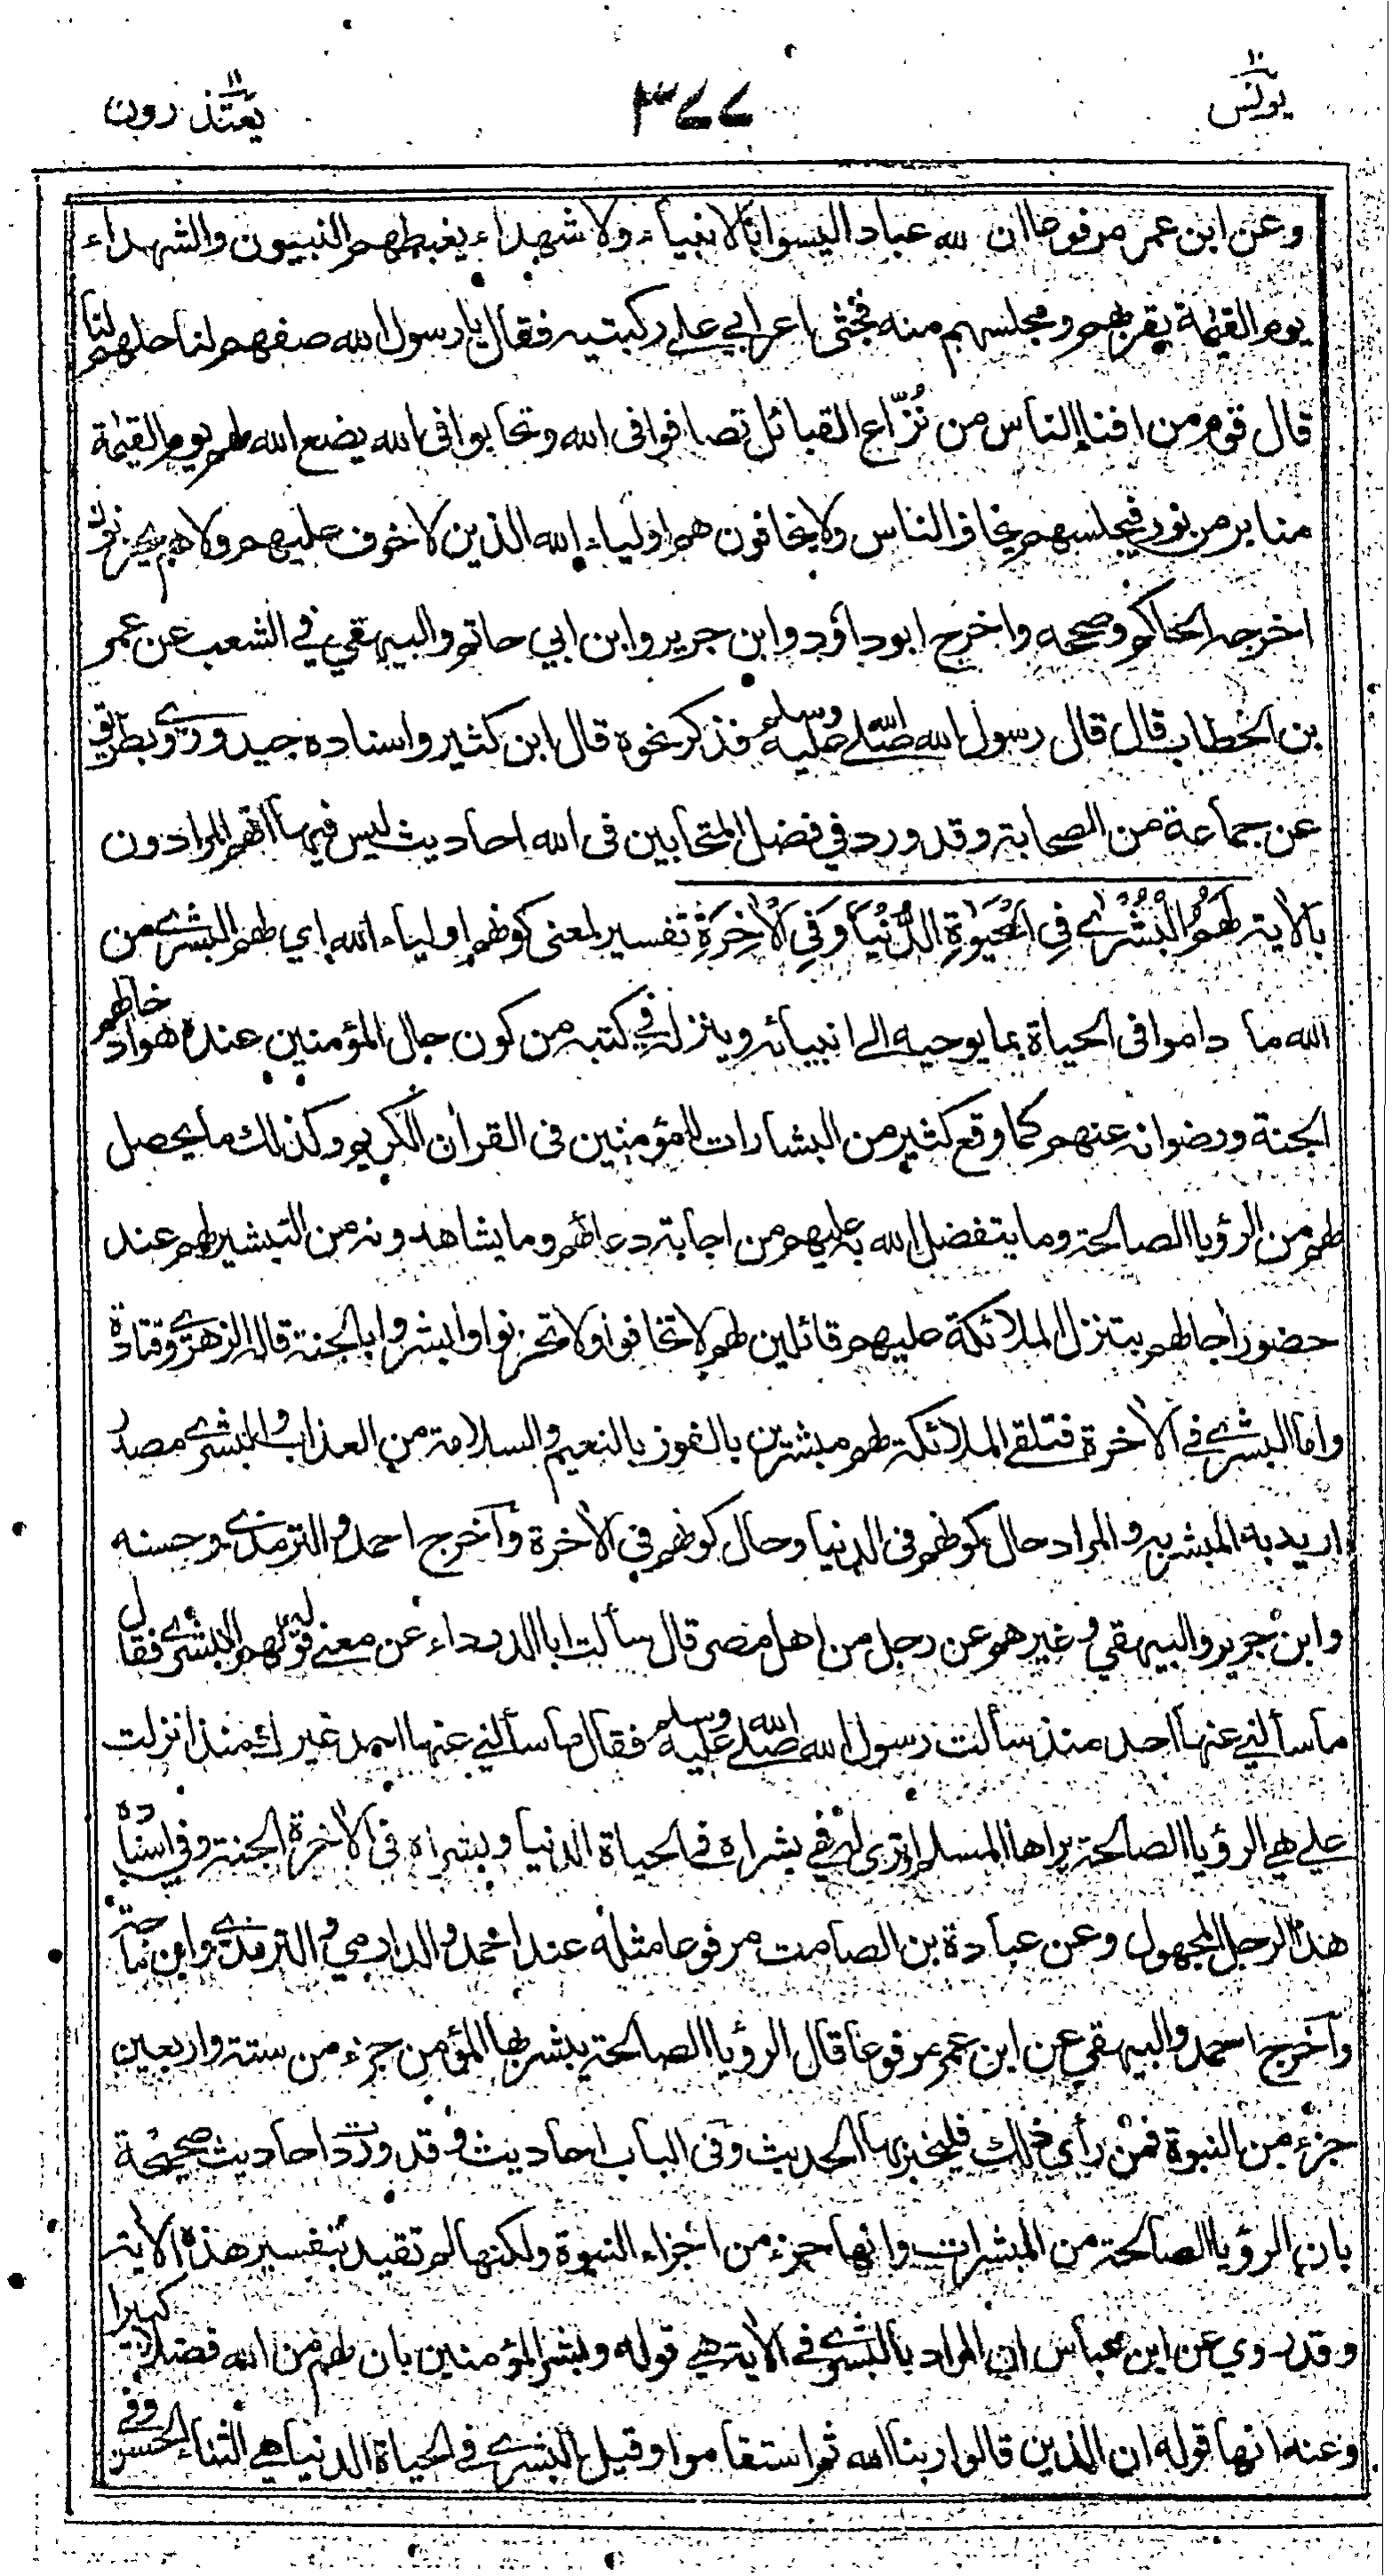 يونس ١٠
٣٧٧
يعتذرون ١١
وعن ابن عمر مرفوعا ان لله عبادا ليسوا بالانبياء ولا شهداء يغبطهم النبيون والشهداء
يوم القيمة بقربهم ومجلسهم منه فجثى اعرابي على ركبتيه فقال يا رسول الله صفهم لنا حلهم لنا
قال قوم من افناء الناس من نُزّاع القبائل تصافوا فى الله وتحابوا فى الله يضع الله لهم يوم القيمة
منابر من نور فيجلسهم يخاف الناس ولا يخافون هم اولياء الله الذين لا خوف عليهم ولا هم يحزنون
اخرجه الحاكم وصححه واخرج ابو داؤد وابن جرير وابن ابي حاتم والبيهقي في الشعب عن عمر
بن الخطاب قال قال رسول الله صلى الله عليه وسلم فذكر نحوه قال ابن كثير واسناده جيد وروي بطريق
عن جماعة من الصحابة وقد ورد في فضل المتحابين فى الله احاديث ليس فيها انهم المرادون
بالاية لَهُمُ الْبُشْرٰى فِى الْحَيٰوةِ الدُّنْيَا وَفِى الْاٰخِرَةِ تفسير لمعنى كونهم اولياء الله اي لهم البشرى من
الله ما داموا فى الحياة بما يوحيه الى انبيائه وينزله في كتبه من كون حال المؤمنين عنده هو ادخالهم
الجنة ورضوانه عنهم كما وقع كثير من البشارات للمؤمنين فى القران الكريم وكذلك ما يحصل
لهم من الرؤيا الصالحة وما يتفضل الله به عليهم من اجابة دعائهم وما يشاهدونه من التبشير لهم عند
حضور اجالهم بتنزل الملائكة عليهم قائلين لهم لا تخافوا ولا تحزنوا وابشروا بالجنة قاله الزهري وقتادة
واما البشرى في الاخرة فتلقى الملائكة لهم مبشرين بالفوز بالنعيم والسلامة من العذاب والبشرى مصدر
اريد به المبشر به والمراد حال كونهم فى الدنيا وحال كونهم فى الاخرة وأخرج احمد والترمذي وحسنه
وابن جرير والبيهقي وغيرهم عن رجل من اهل مصر قال سألت ابا الدرداء عن معنى قوله لهم البشرى فقال
ما سألني عنها احد منذ سألت رسول الله صلى الله عليه وسلم فقال ما سألني عنها احد غيرك منذ انزلت
علي هي الرؤيا الصالحة يراها المسلم او ترى له فهي بشراه في الحياة الدنيا وبشراه فى الاخرة الجنة وفي اسناده
هذا الرجل المجهول وعن عبادة بن الصامت مرفوعا مثله عند احمد والدارمي والترمذي وابن ماجة
وأخرج احمد والبيهقي عن ابن عمر مرفوعا قال الرؤيا الصالحة يبشر بها المؤمن جزء من ستة واربعين
جزء من النبوة فمن رأى ذلك فليخبر بها الحديث وفى الباب احاديث وقد وردت احاديث صحيحة
بان الرؤيا الصالحة من المبشرات وانها جزء من اجزاء النبوة ولكنها لم تقيد بتفسير هذه الاية
وقد روي عن ابن عباس ان المراد بالبشرى في الاية هي قوله وبشر المؤمنين بان لهم من الله فضلا كبيرا
وعنه انها قوله ان الذين قالوا ربنا الله ثم استقاموا وقيل البشرى في الحياة الدنيا هي الثناء الحسن وفي